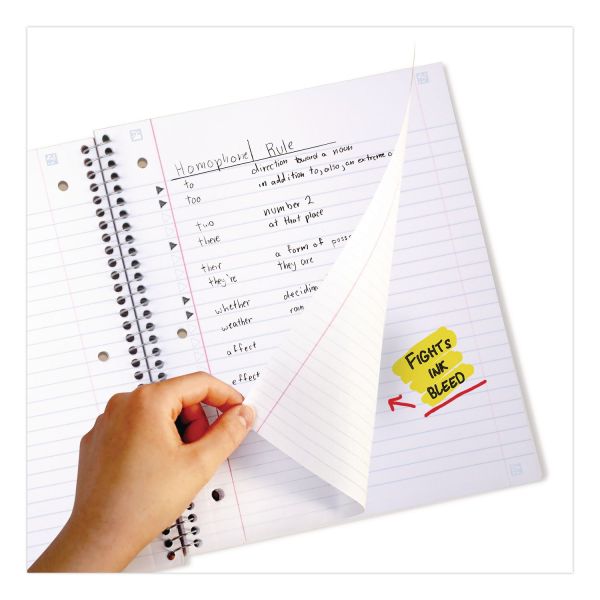 Homophone Rule
to direction toward a noun
too in addition to, also, an extreme o
two number 2
there at that place
their a form of posse
they're they are
whether deciding
weather rain
affect
effect
FIGHTS
INK
BLEED